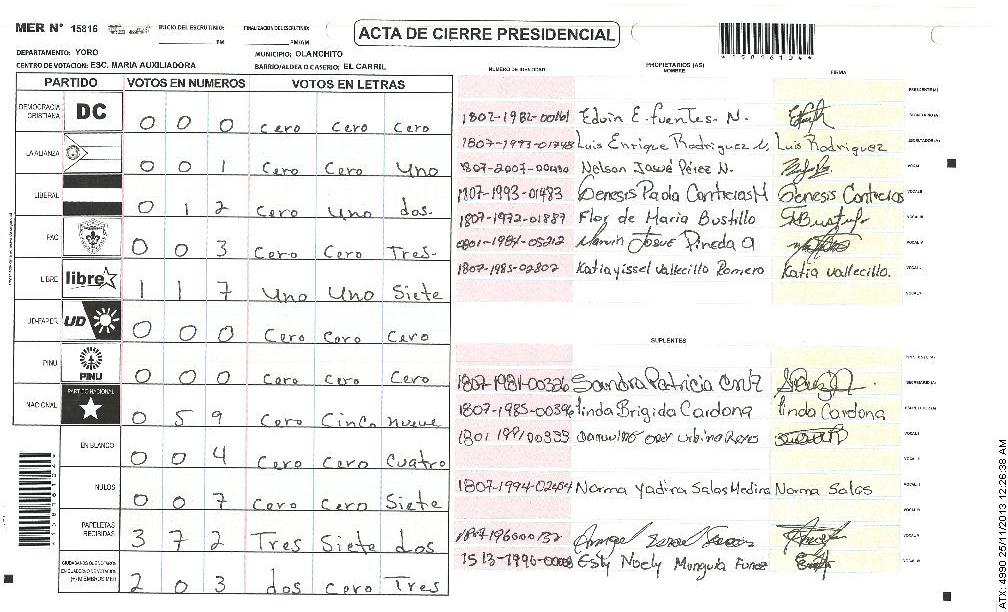 MER N° 15816 INICIO DEL ESCRUTINIO: FINALIZACION DEL ESCRUTINIO:
ACTA DE CIERRE PRESIDENCIAL
DEPARTAMENTO: YORO MUNICIPIO: OLANCHITO
CENTRO DE VOTACION: ESC. MARIA AUXILIADORA BARRIO/ALDEA O CASERIO: EL CARRIL
PARTIDO VOTOS EN NUMEROS VOTOS EN LETRAS
DEMOCRACIA CRISTIANA DC 0 0 0 Cero Cero Cero
LA ALIANZA 0 0 1 Cero Cero Uno
LIBERAL 0 1 2 Cero Uno dos.
PAC 0 0 3 Cero Cero Tres.
LIBRE libre 1 1 7 Uno Uno Siete
UD-FAPER UD 0 0 0 Cero Cero Cero
PINU PINU 0 0 0 Cero Cero Cero
NACIONAL PARTIDO NACIONAL 0 5 9 Cero Cinco nueve
EN BLANCO 0 0 4 Cero Cero Cuatro
NULOS 0 0 7 Cero Cero Siete
PAPELETAS RECIBIDAS 3 7 2 Tres Siete dos
2 0 3 dos Cero Tres
NUMERO DE IDENTIDAD PROPIETARIOS (AS) NOMBRE FIRMA
1802-1982-00161 Edwin E. fuentes. N.
1807-1993-01748 Luis Enrique Rodriguez Luis Rodriguez
1807-2007-00490 Nelson Josué Pérez N.
1807-1993-01483 Genesis Paola Contreras M Genesis Contreras
1807-1972-01887 Flor de Maria Bustillo
0801-1984-05212 Marvin Josue Pineda
1807-1985-02802 Katia yissel Vallecillo Romero Katia Vallecillo.
SUPLENTES
1807-1981-00326 Sandra Patricia Cruz
1807-1985-00396 linda Brigida Cardona linda Cardona
1807-1994-02464 Norma Yadira Salas Medina Norma Salas
Esly Noely Munguia Funez
ATX: 4990 25/11/2013 12:26:38 AM